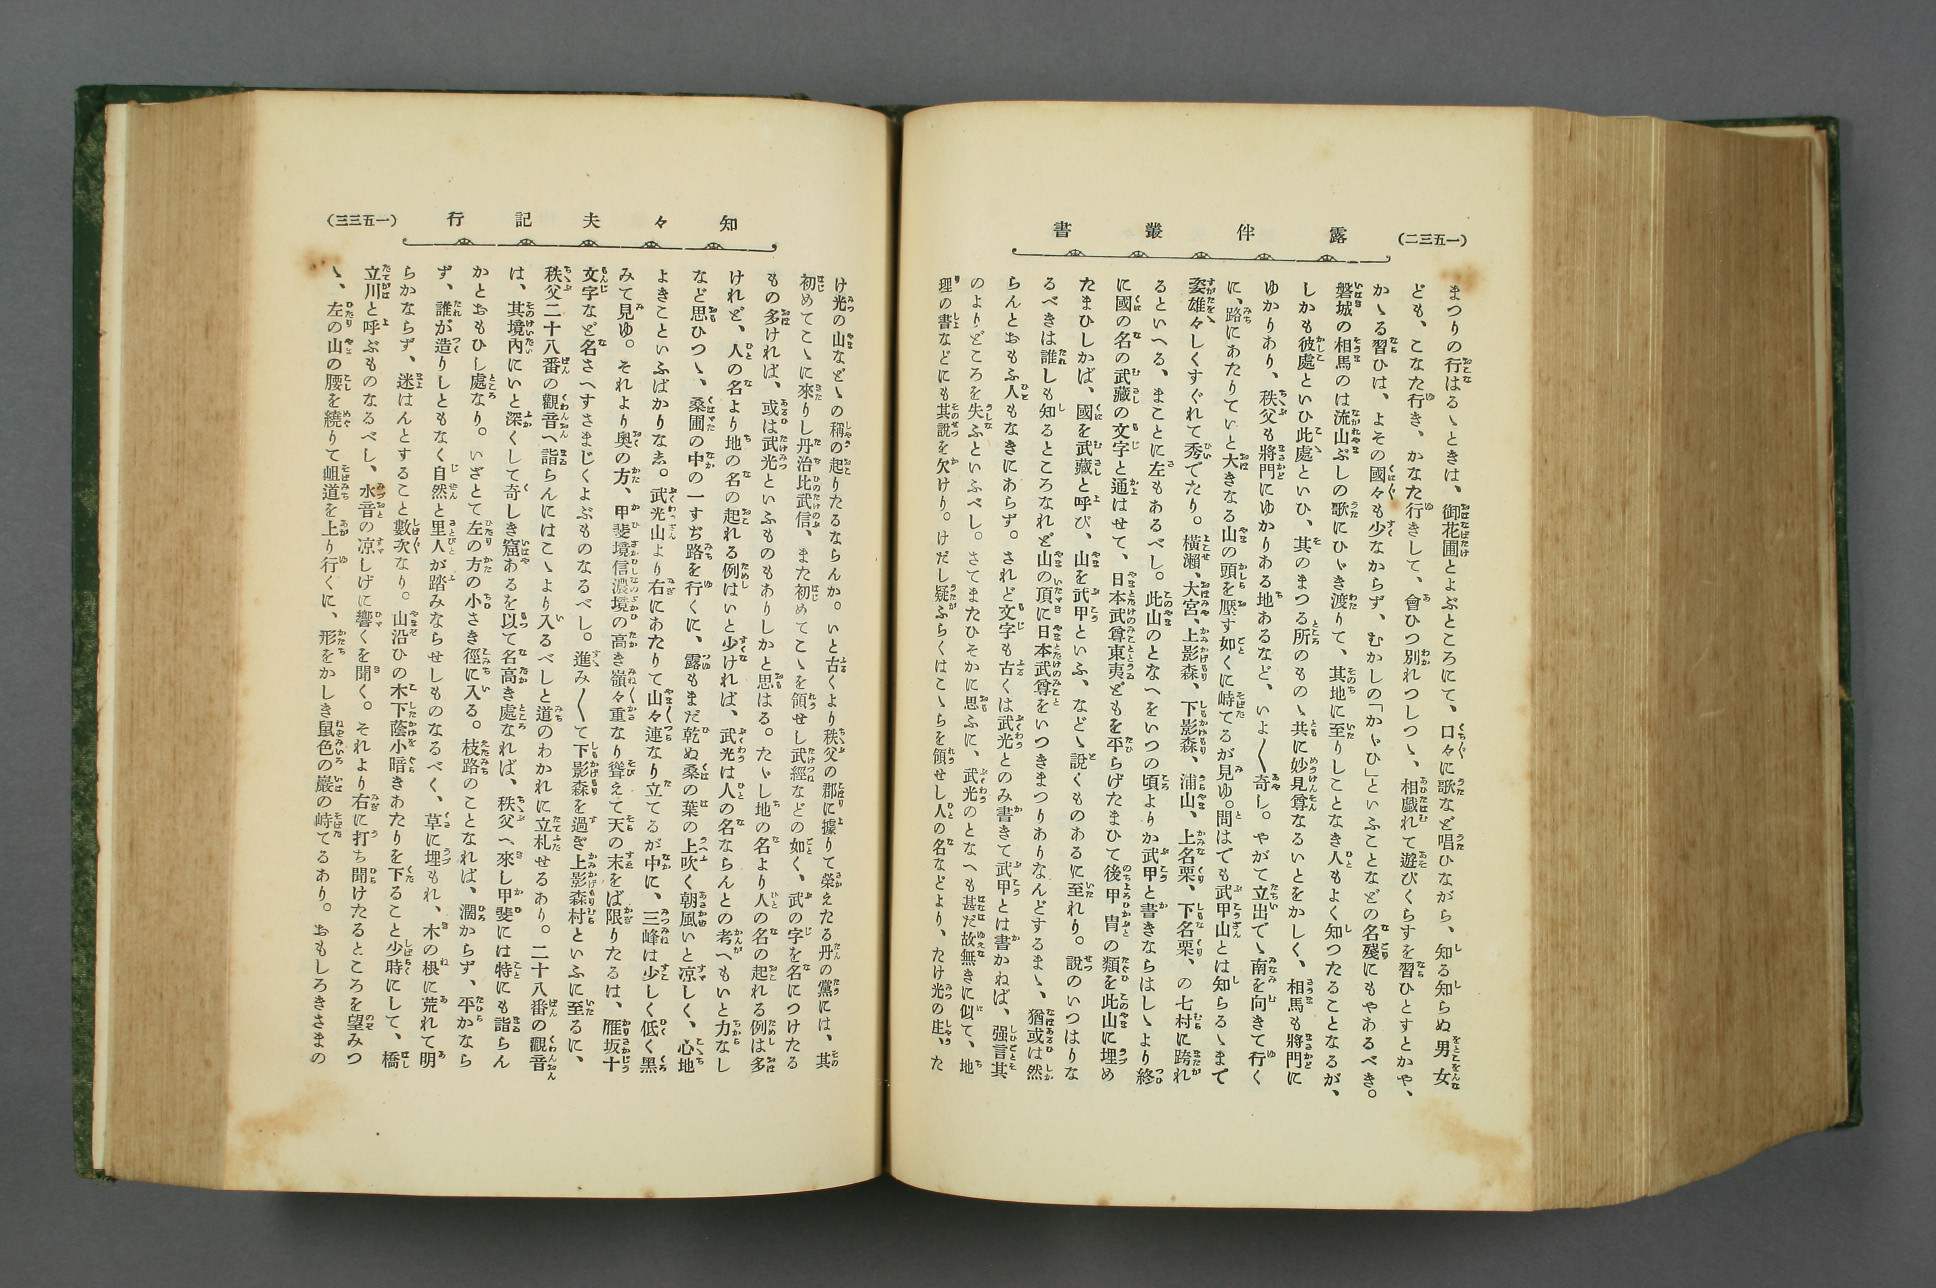 (一五三二)
露伴叢書
まつりの行はるゝときは、御花圃とよぶところにて、口々に歌など唱ひながら、知る知らぬ男女
ども、こなた行き、かなた行きして、會ひつ別れつしつゝ、相戯れて遊びくらすを習ひとすとかや、
かゝる習ひは、よその國々も少なからず、むかしの「かゞひ」といふことなどの名殘にもやあるべき。
磐城の相馬のは流山ぶしの歌にひゞき渡りて、其地に至りしことなき人もよく知つたることなるが、
しかも彼處といひ此處といひ、其のまつる所のものゝ共に妙見尊なるいとをかしく、相馬も將門に
ゆかりあり、秩父も將門にゆかりある地あるなど、いよ〱奇し。やがて立出でゝ南を向きて行く
に、路にあたりていと大きなる山の頭を壓す如くに峙てるが見ゆ。問はでも武甲山とは知らるゝまで
姿雄々しくすぐれて秀でたり。横瀬、大宮、上影森、下影森、浦山、上名栗、下名栗、の七村に跨れ
るといへる、まことに左もあるべし。此山のとなへをいつの頃よりか武甲と書きならはしゝより終
に國の名の武藏の文字と通はせて、日本武尊東夷どもを平らげたまひて後甲冑の類を此山に埋め
たまひしかば、國を武藏と呼び、山を武甲といふ、などゝ説くものあるに至れり。説のいつはりな
るべきは誰しも知るところなれど山の頂に日本武尊をいつきまつりありなんどするまゝ、猶或は然
らんとおもふ人もなきにあらず。されど文字も古くは武光とのみ書きて武甲とは書かねば、强言其
のよりどころを失ふといふべし。さてまたひそかに思ふに、武光のとなへも甚だ故無きに似て、地
理の書などにも其説を欠けり。けだし疑ふらくはこゝらを領せし人の名などより、たけ光の庄、た
知々夫記行
(一五三三)
け光の山などゝの稱の起りたるならんか。いと古くより秩父の郡に據りて榮えたる丹の黨には、其
初めてこゝに來りし丹治比武信、また初めてこゝを領せし武經などの如く、武の字を名につけたる
もの多ければ、或は武光といふものもありしかと思はる。たゞし地の名より人の名の起れる例は多
けれど、人の名より地の名の起れる例はいと少ければ、武光は人の名ならんとの考へもいと力なし
など思ひつゝ、桑圃の中の一すぢ路を行くに、露もまだ乾ぬ桑の葉の上吹く朝風いと凉しく、心地
よきこといふばかりなし。武光山より右にあたりて山々連なり立てるが中に、三峰は少しく低く黑
みて見ゆ。それより奥の方、甲斐境信濃境の高き嶺々重なり聳えて天の末をば限りたるは、雁坂十
文字など名さへすさまじくよぶものなるべし。進み〱て下影森を過ぎ上影森村といふに至るに、
秩父二十八番の觀音へ詣らんにはこゝより入るべしと道のわかれに立札せるあり。二十八番の觀音
は、其境內にいと深くして奇しき窟あるを以て名高き處なれば、秩父へ來し甲斐には特にも詣らん
かとおもひし處なり。いざとて左の方の小さき徑に入る。枝路のことなれば、濶からず、平かなら
ず、誰が造りしともなく自然と里人が踏みならせしものなるべく、草に埋もれ、木の根に荒れて明
らかならず、迷はんとすること數次なり。山沿ひの木下蔭小暗きあたりを下ること少時にして、橋
立川と呼ぶものなるべし、水音の凉しげに響くを聞く。それより右に打ち開けたるところを望みつ
ゝ、左の山の腰を繞りて岨道を上り行くに、形をかしき鼠色の巖の峙てるあり。おもしろきさまの